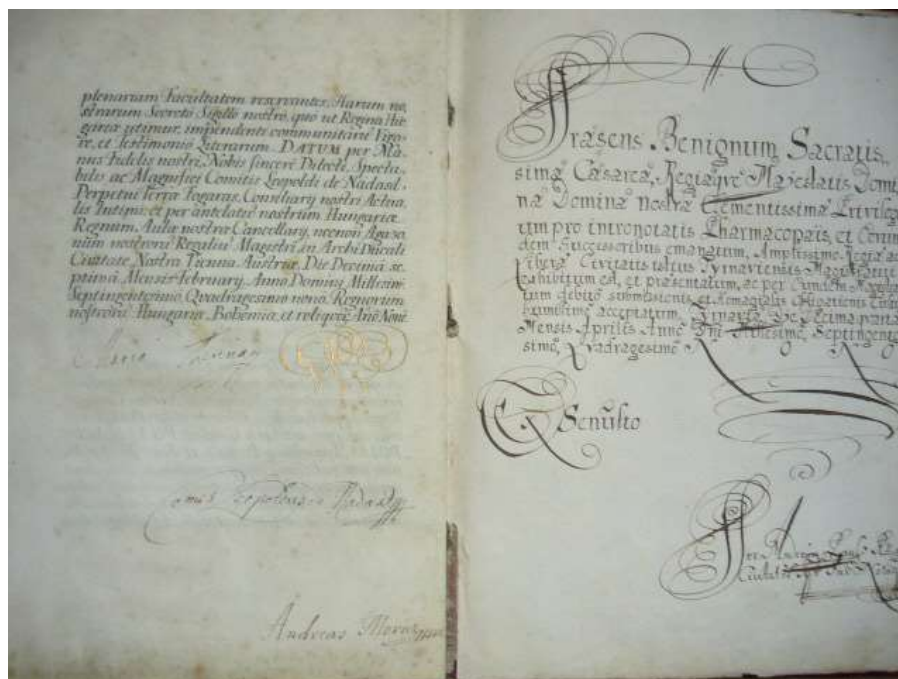 plenariam Facultatem reservantes. Harum no,
strarum Secreto Sigillo nostro, quo ut Regina Hun
gariæ utimur, impendenti communitarū Vigo
re, et Testimonio Literarum. DATUM per Ma
nus Fidelis nostri, Nobis Sincere Dilecti, Specta
bilis ac Magnifici Comitis Leopoldi de Nadasd,
Perpetui Terræ Fogaras, Consiliary nostri Actua
lis Intimi, et per antelatū nostrum Hungariæ
Regnum, Aulæ nostræ Cancellary, necnon Agazo
num nostrorū Regaliū Magistri, in Archi Ducali
Civitate, Nostra Vienna, Austriæ, Die Decima se
ptima Mensis February, Anno Domini Millesimo
Septingentesimo, Quadragesimo nono, Regnorum
nostrorū Hungariæ, Bohemiæ, et reliquorū Año Nono.
Maria
Comes Leopoldus Nadasd
Andreas
Præsens Benignum Sacratis,
simæ Cæsareæ, Regiæqvè Majestatis Domi
næ Dominæ nostræ Clementissimæ Privilegi
um pro intronotatis Pharmacopæis, et Eorun
dem Successoribus emanatum, Amplissimo Regiæ ac
Liberæ Civitatis istius Tyrnaviensis Magistratui
exhibitum est, et præsentatum, ac per Eundem
tum debito submissionis, et Homagialis
acceptatum, Tirnaviæ Die Decima
Mensis Aprilis Anno Dñi Millesimo, Septingente
simo, Quadragesimo
Ex Senatu
Per